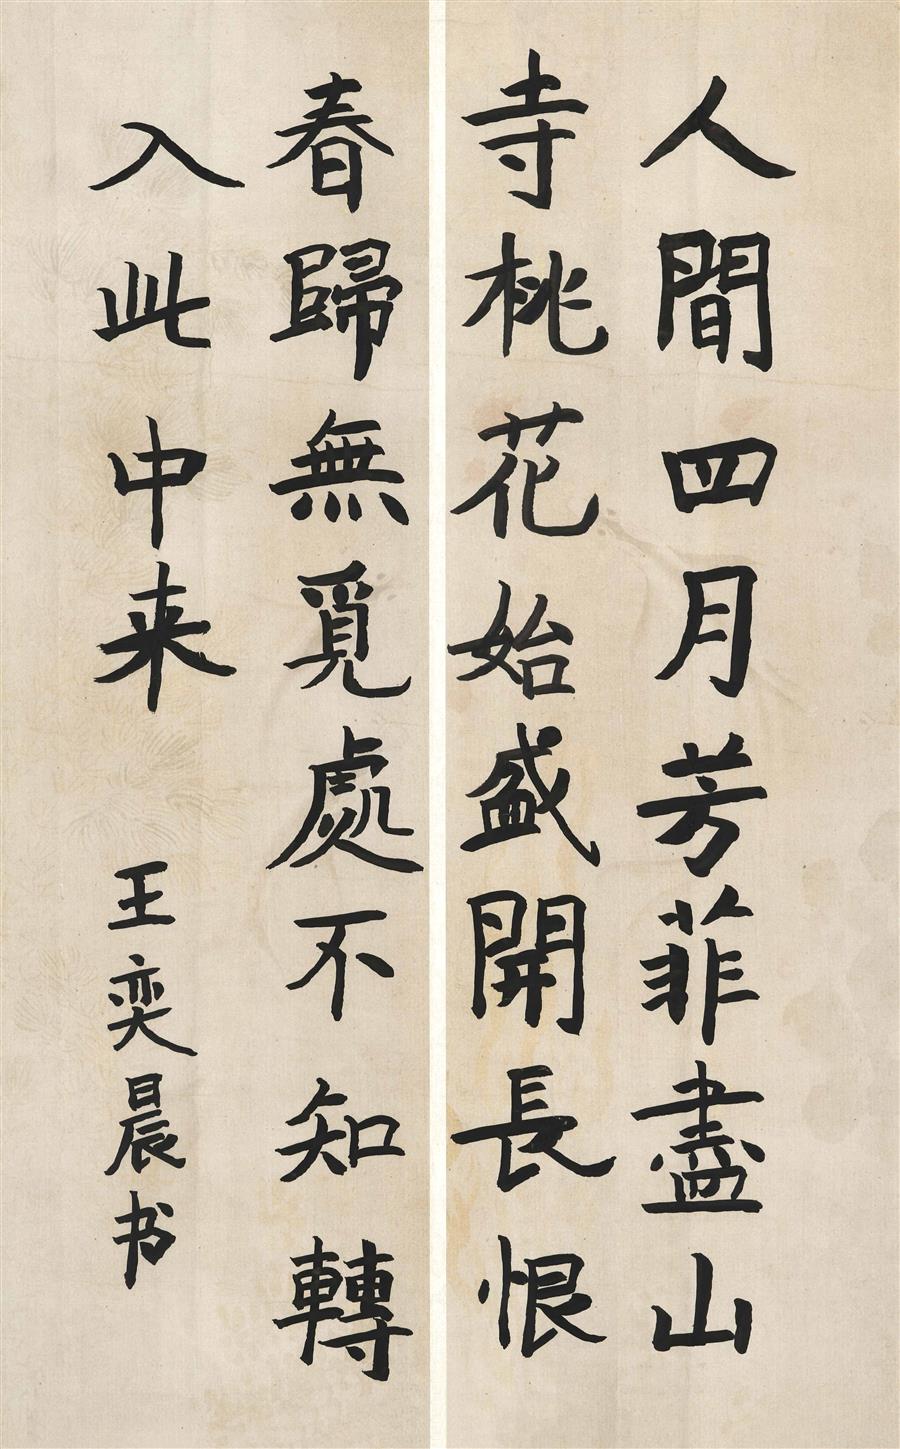 人間四月芳菲盡山
寺桃花始盛開長恨
春歸無覓處不知轉
入此中来 王奕晨书